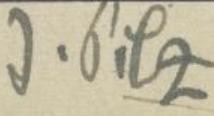 J. Pilz